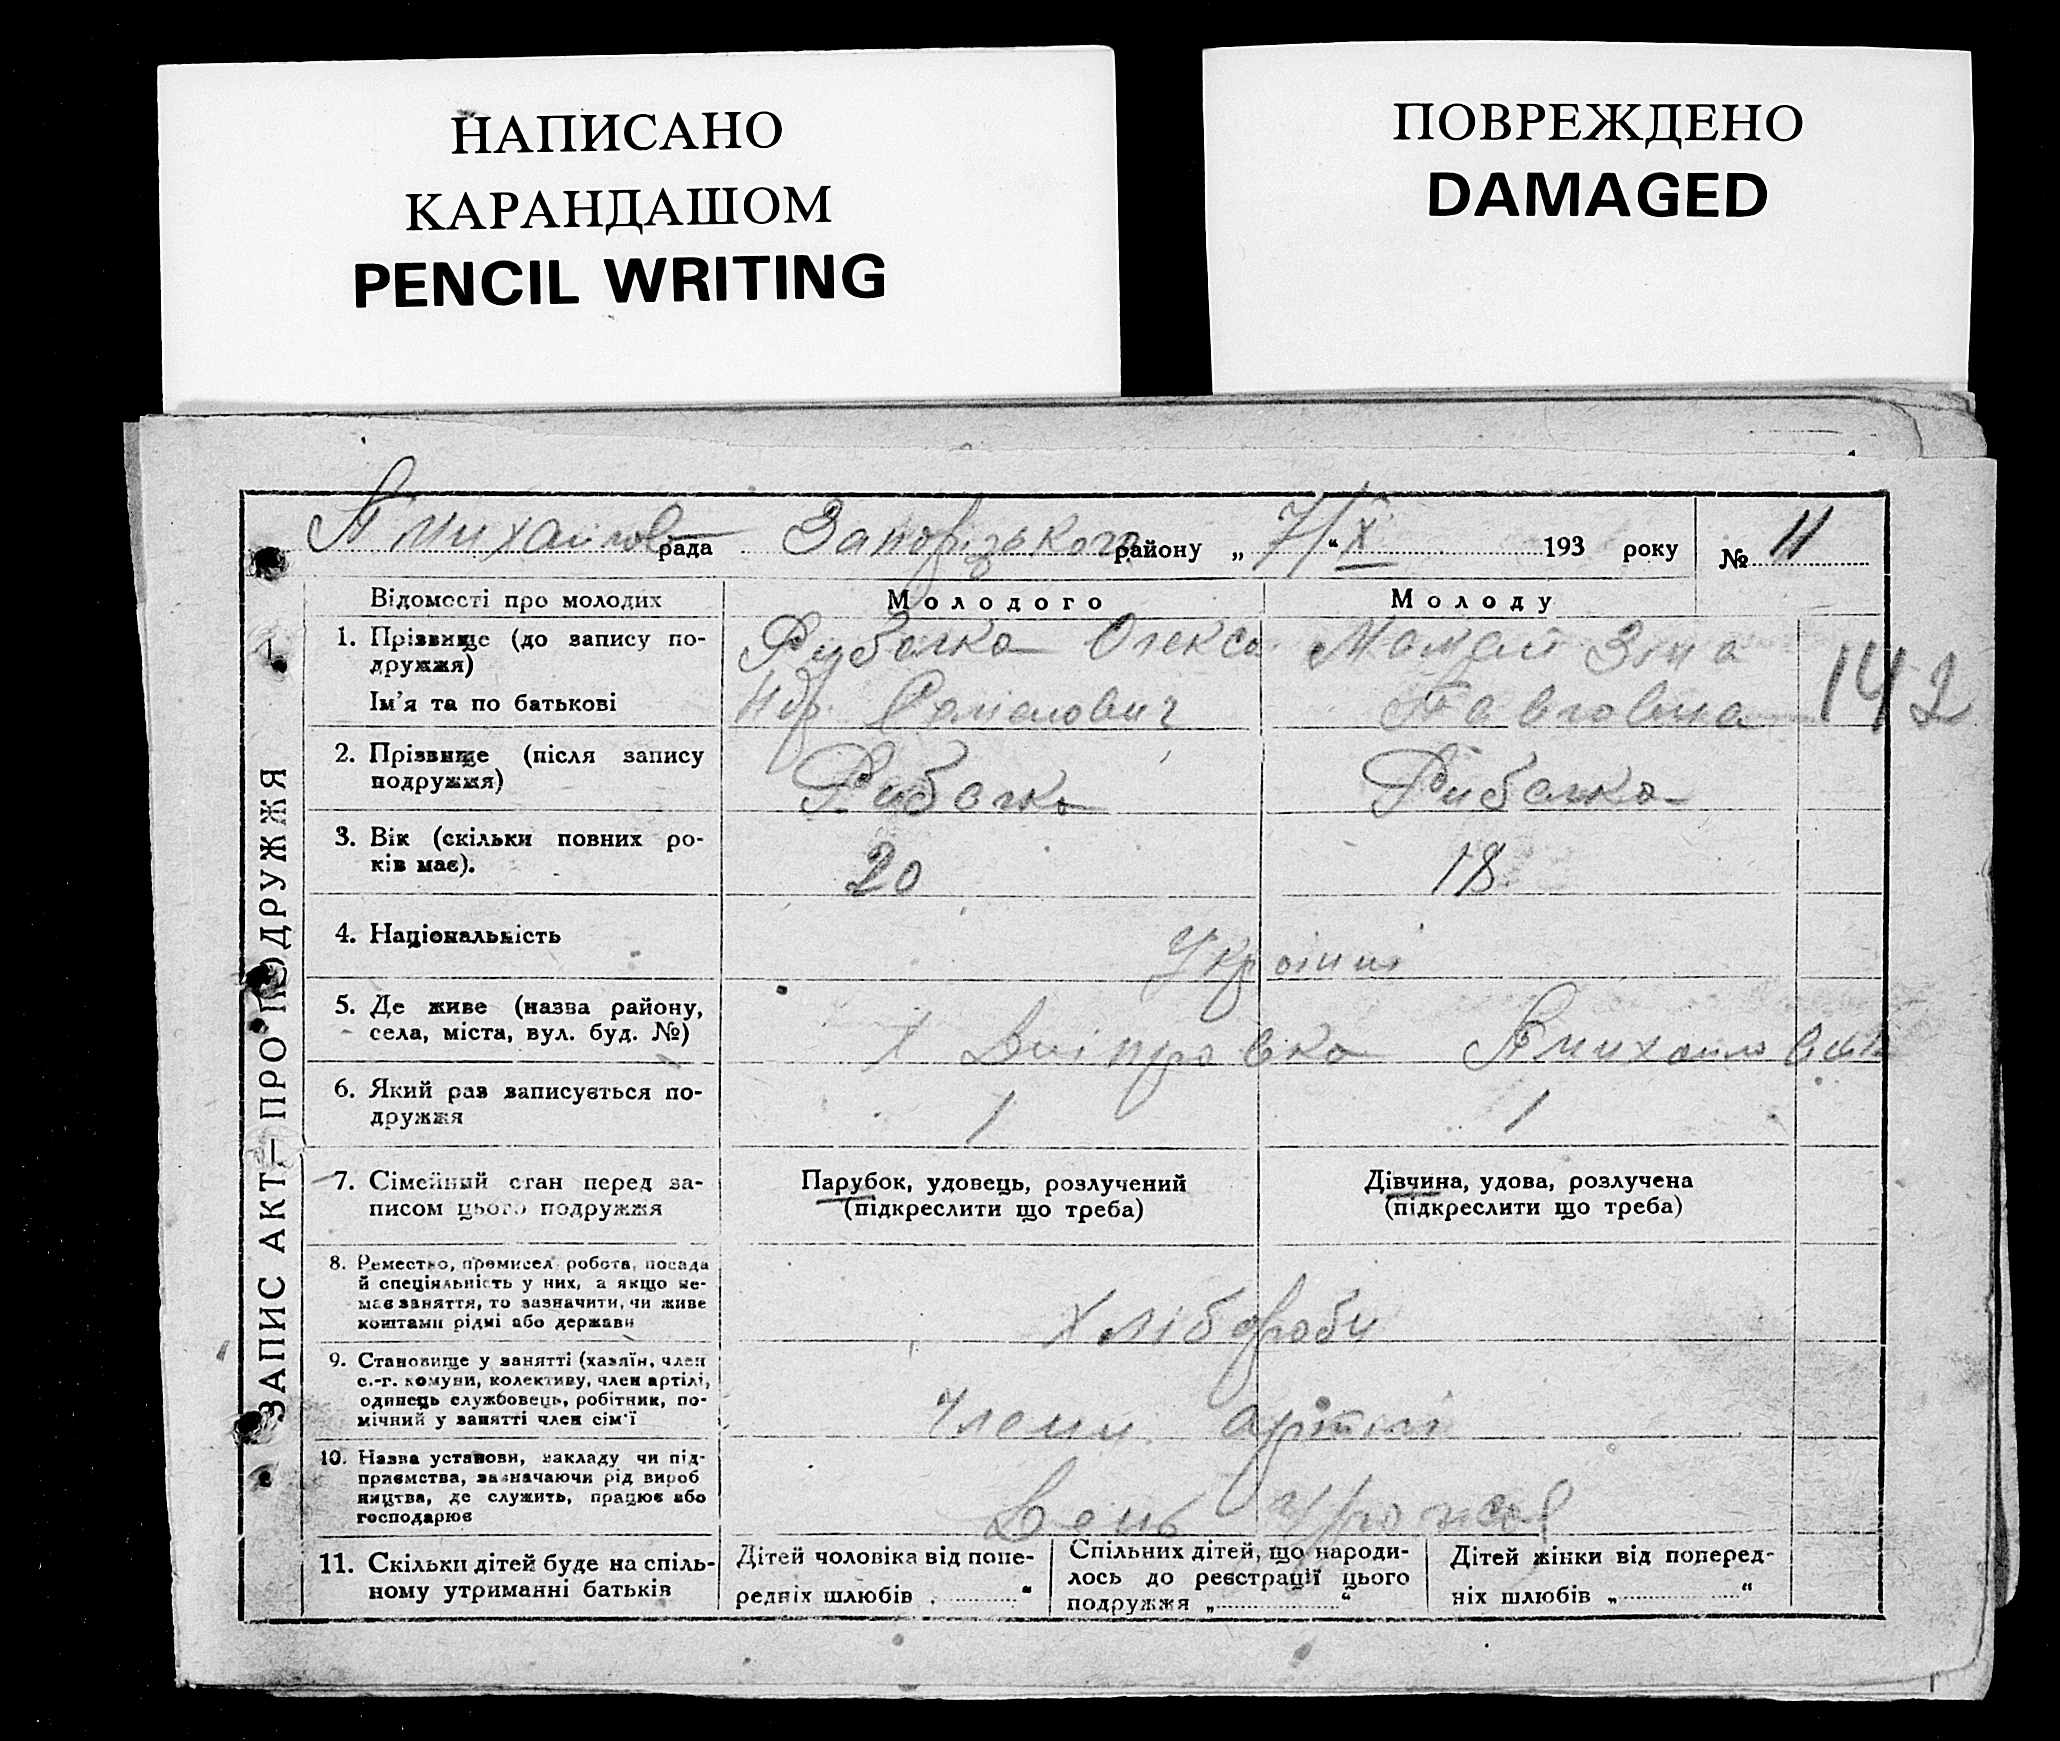 НАПИСАНО
КАРАНДАШОМ
PENCIL WRITING
ПОВРЕЖДЕНО
DAMAGED
рада Запорізького району „ 7/X “ 193 року № 11
ЗАПИС АКТ — ПРО ПОДРУЖЖЯ
Відомості про молодих Молодого Молоду
1. Прізвище (до запису по-
дружжя)
Рибалка Олекса Мамай Зіна
Ім’я та по батькові
ндр Семенович Павловна
142
2. Прізвище (після запису
подружжя)
Рибалка Рибалка
3. Вік (скільки повних ро-
ків має).
20 18
4. Національність
Українці
5. Де живе (назва району,
села, міста, вул. буд. №)
Х Дніпровка
6. Який раз записується по-
дружжя
1 1
7. Сімейний стан перед за-
писом цього подружжя
Парубок, удовець, розлучений
(підкреслити що треба)
Дівчина, удова, розлучена
(підкреслити що треба)
8. Ремество, промисел робота, посада
й спеціяльність у них, а якщо не-
має заняття, то зазначити, чи живе
коштами рідмі або держави
Хлібороби
9. Становище у занятті (хазяїн, член
с.-г. комуни, колективу, член артілі,
одинець службовець, робітник, по-
мічний у занятті член сім’ї
Члени артілі
10. Назва установи, закладу чи під-
приємства, зазначаючи рід вироб
ництва, де служить, працює або
господарює
День Урожая
11. Скільки дітей буде на спіль-
ному утриманні батьків
Дітей чоловіка від попе-
редніх шлюбів „ “
Спільних дітей, що народи-
лось до реєстрації цього
подружжя „ “
Дітей жінки від поперед-
ніх шлюбів „ “